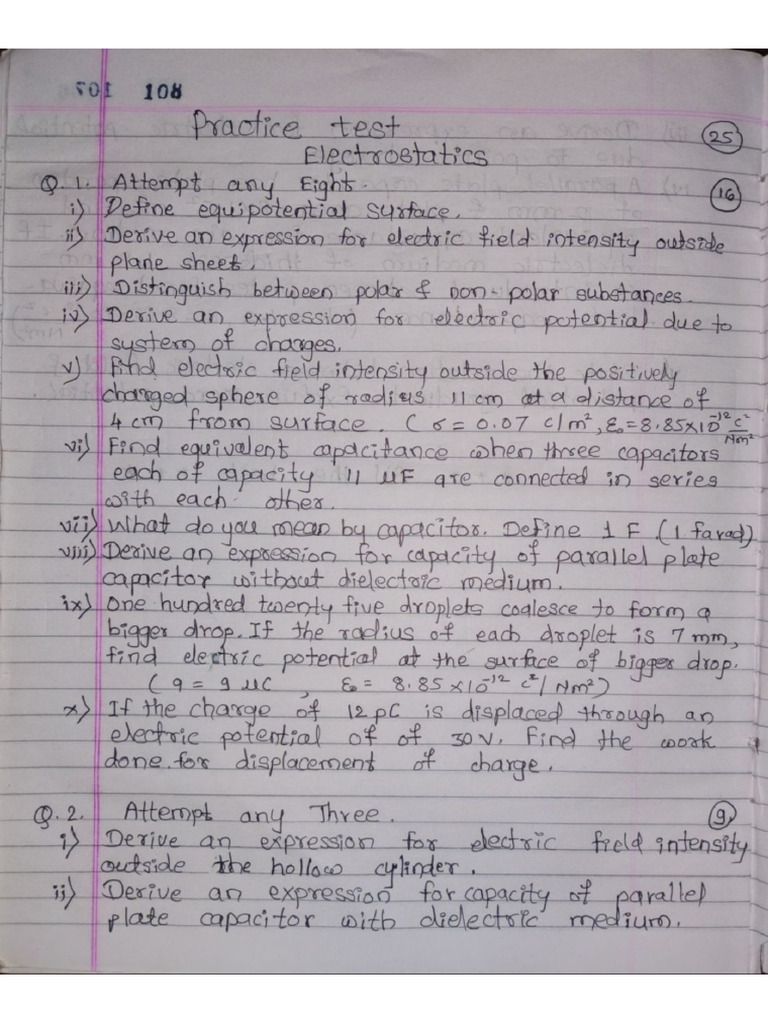 701 108
Practice test
25
Electrostatics
Q.1. Attempt any Eight.
16
i) Define equipotential surface.
ii) Derive an expression for electric field intensity outside
plane sheet.
iii) Distinguish between polar & non-polar substances.
iv) Derive an expression for electric potential due to
system of charges.
v) Find electric field intensity outside the positively
charged sphere of radius 11 cm at a distance of
4 cm from surface. (σ = 0.07 c/m², ε₀ = 8.85×10⁻¹² c²/Nm²
vi) Find equivalent capacitance when three capacitors
each of capacity 11 μF are connected in series
with each other.
vii) What do you mean by capacitor. Define 1 F (1 farad)
viii) Derive an expression for capacity of parallel plate
capacitor without dielectric medium.
ix) One hundred twenty five droplets coalesce to form a
bigger drop. If the radius of each droplet is 7 mm,
find electric potential at the surface of bigger drop.
(q = 9 μC , ε₀ = 8.85 × 10⁻¹² c²/Nm²)
x) If the charge of 12 pC is displaced through an
electric potential of of 30 V. Find the work
done for displacement of charge.
Q.2. Attempt any Three.
9
i) Derive an expression for electric field intensity
outside the hollow cylinder.
ii) Derive an expression for capacity of parallel
plate capacitor with dielectric medium.